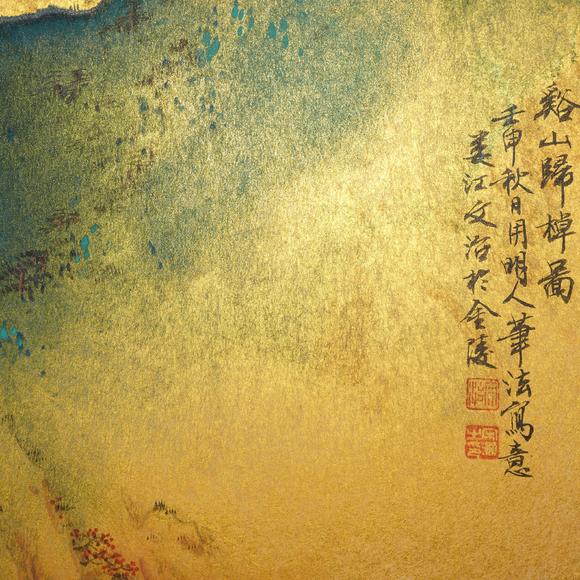 谿山歸棹圖
壬申秋日用明人筆法寫意
婁江文治於金陵